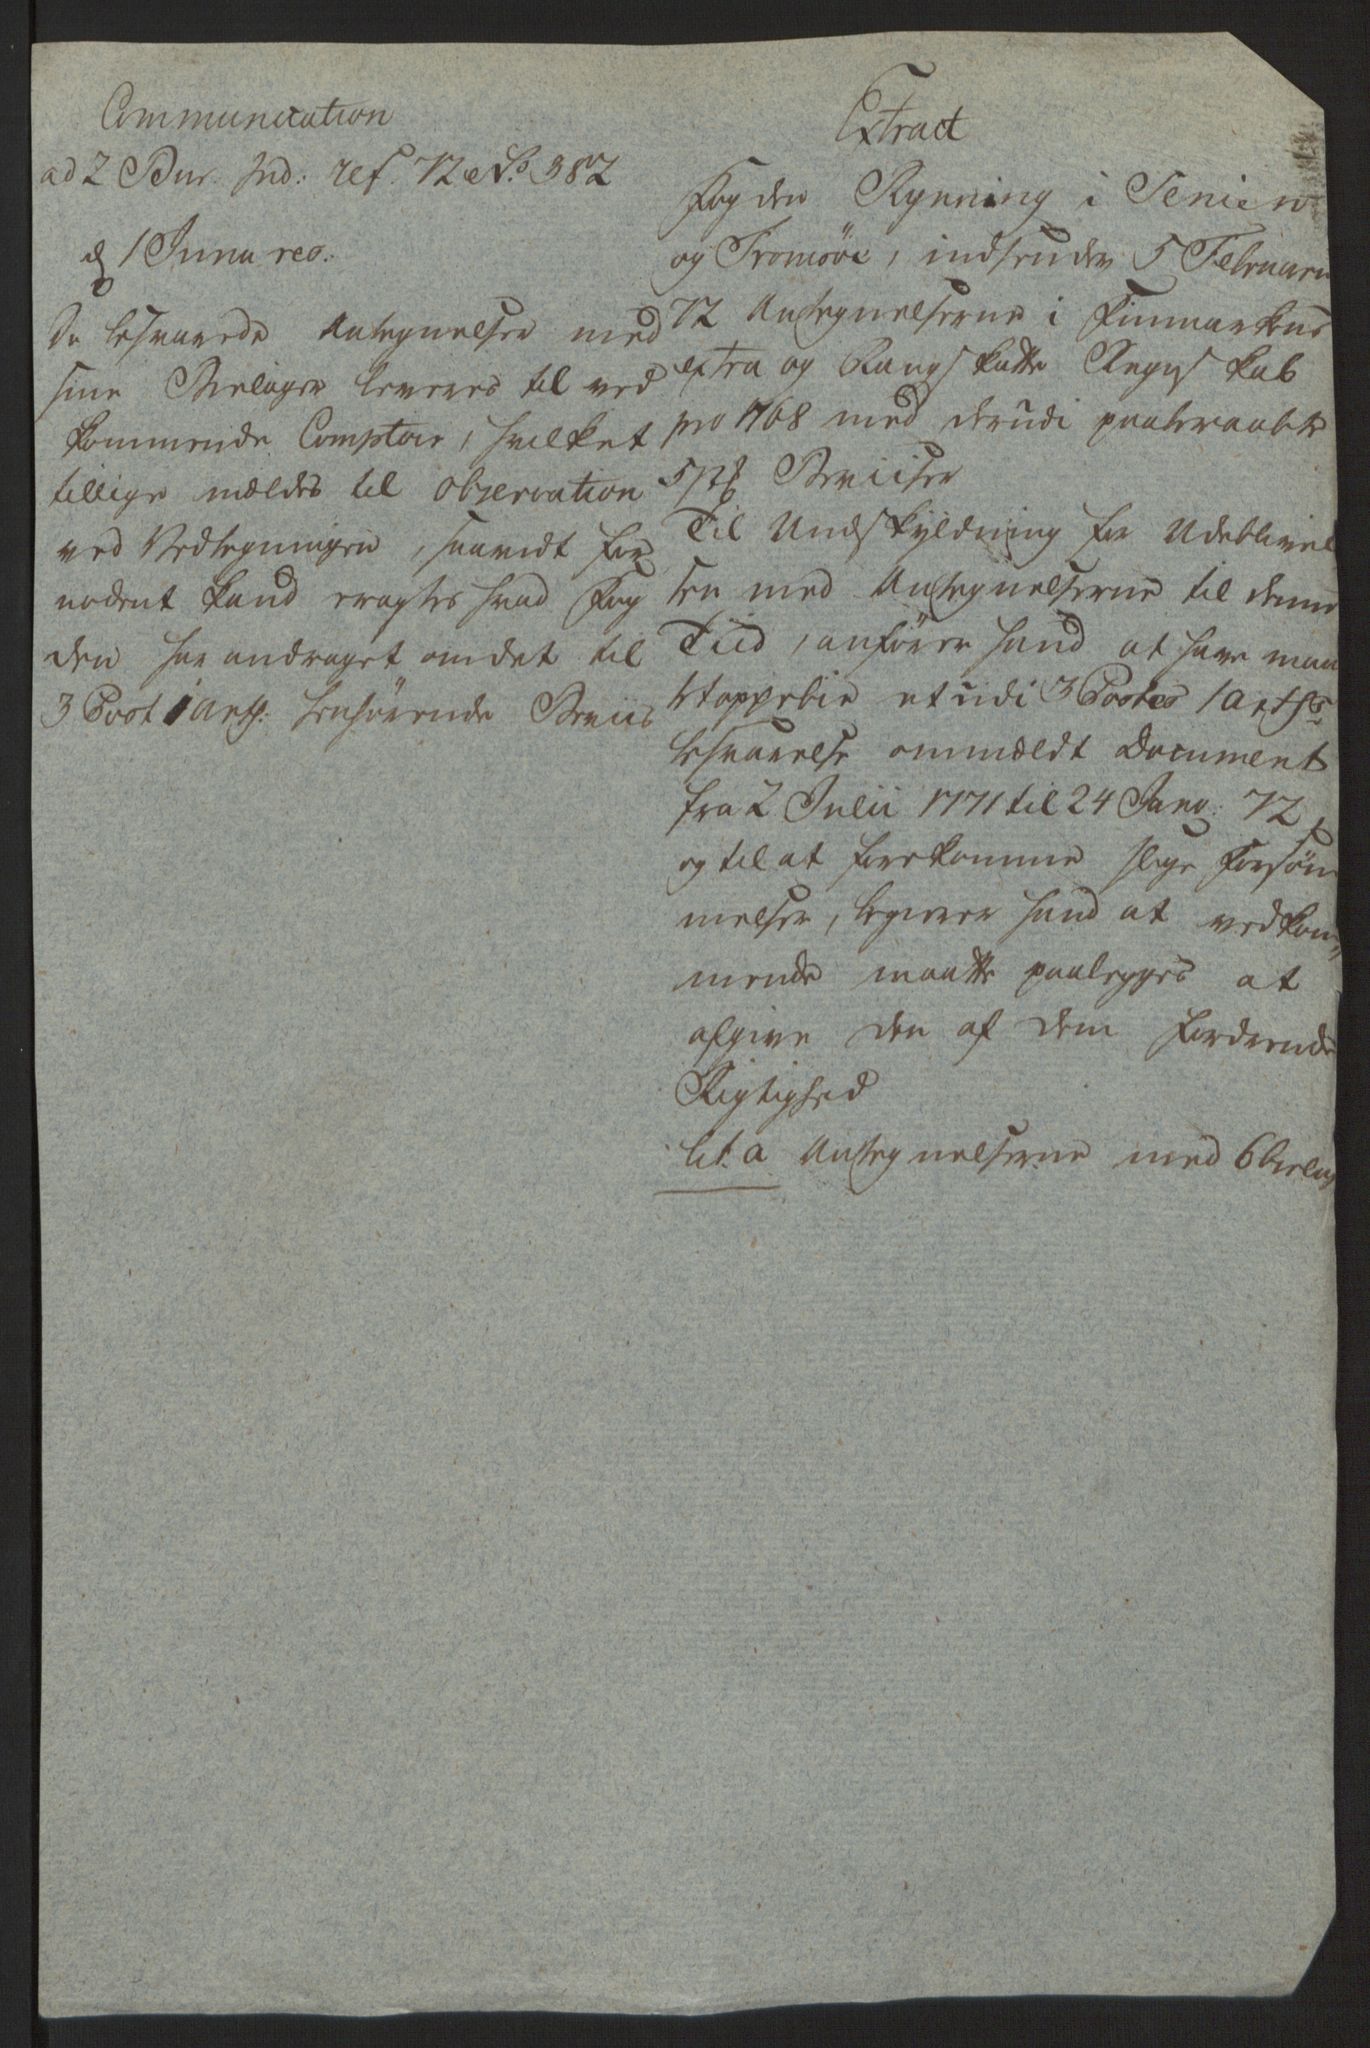 Communication
ad 2 Bur. Ind: ref. 72 No. 382
d 1 Junii res:
De besvarede Antegnelser med
sine Bielager leveres til ved
kommende Comptoir, hvilket
tillige meldes til observation
ved Vedtegningen, saavidt for
nødent kand eragtes hvad Fog
den har andraget om det til
3 Post 1 Ants: henhørende Beviis
Extract
Fogden Rynning i Senien
og Tromsøe, indsender 5 Februarii
72 Antegnelserne i Finmarkens
extra og Rangskatte Regnskab
pro 1768 med derudi paaberaabte
5 st Beviiser
Til Undskyldning for Udeblivel
sen med Antegnelserne til denne
Tiid, anfører hand at have maa
et udi 3 Postes 1 Ants
besvarelse ommeldt Document
fra 2 Julii 1771 til 24 Janv: 72,
og til at forekomme slige Forsøm
melser, begierer hand at vedkom
mende maatte paalegges at
afgive den af dem fordrende
Rigtighed
lit. a Antegnelserne med 6 bielag